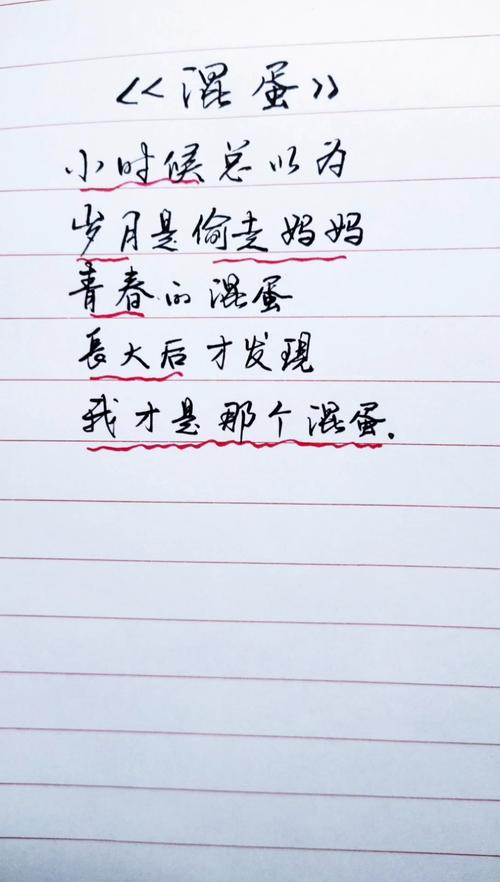 《混蛋》
小时候总以为
岁月是偷走妈妈
青春的混蛋
長大后才发現
我才是那个混蛋.